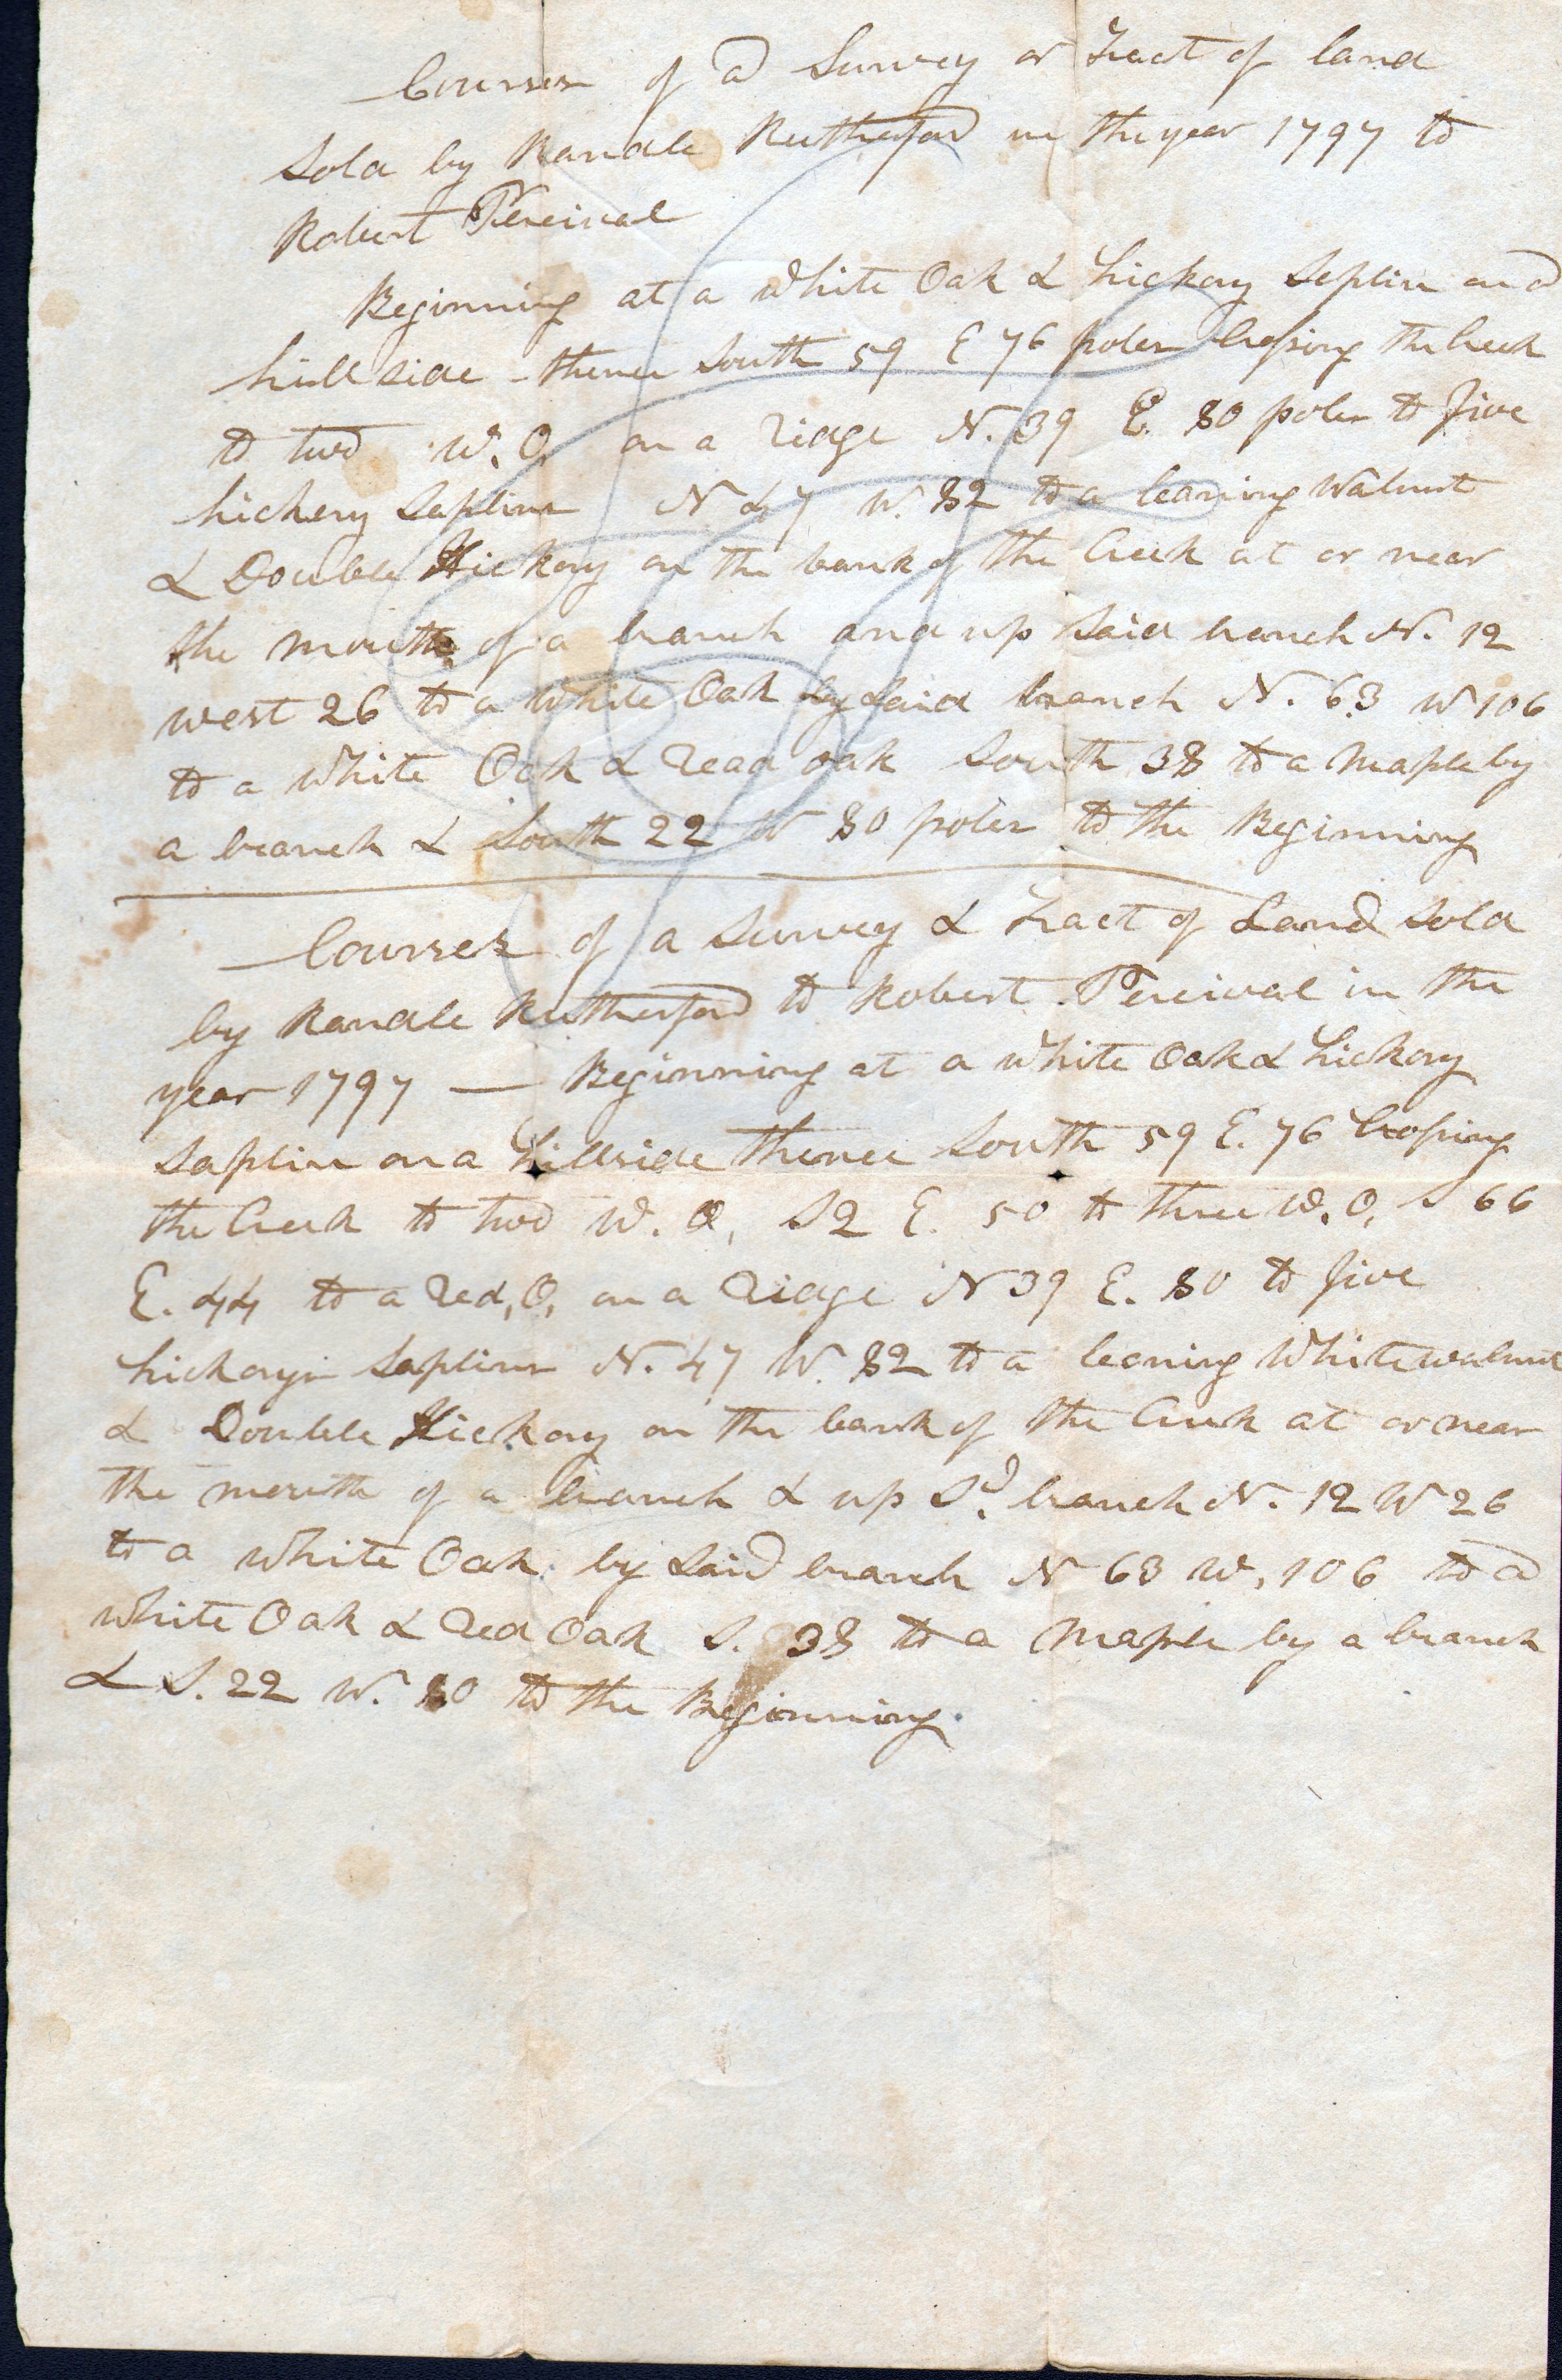 Courses of a Survey or Tract of land
Sold by Randle Rutherford in the year 1797 to
Robert Percival
Beginning at a White Oak & hickory Saplin on a
hill side thence South 59 E 76 poles Crossing the Creek
to two W. O. on a ridge N. 39 E. 80 poles to five
hickery Saplins N 47 W. 82 to a leaning Walnut
& Double Hickory on the bank of the Creek at or near
the mouth of a branch and up Said branch N. 12
west 26 to a White Oak by Said branch N. 63 W 106
to a White Oak & read oak South 38 to a maple by
a branch & South 22 W 80 poles to the Beginning
Courses of a Survey & Tract of Land Sold
by Randle Rutherford to Robert Percival in the
year 1797 — Beginning at a White Oak & hickory
Saplin on a hillside thence South 59 E. 76 Crossing
the Creek to two W. O, S 2 E. 50 to three W. O, S 66
E. 44 to a red, O, on a ridge N 39 E. 80 to five
hickory Saplins N. 47 W. 82 to a leaning White walnut
& Double Hickory on the bank of the Creek at or near
the mouth of a branch & up Sd. branch N. 12 W 26
to a White Oak by Said branch N 63 W, 106 to a
White Oak & red Oak S. 38 to a maple by a branch
& S. 22 W. 80 to the Beginning.